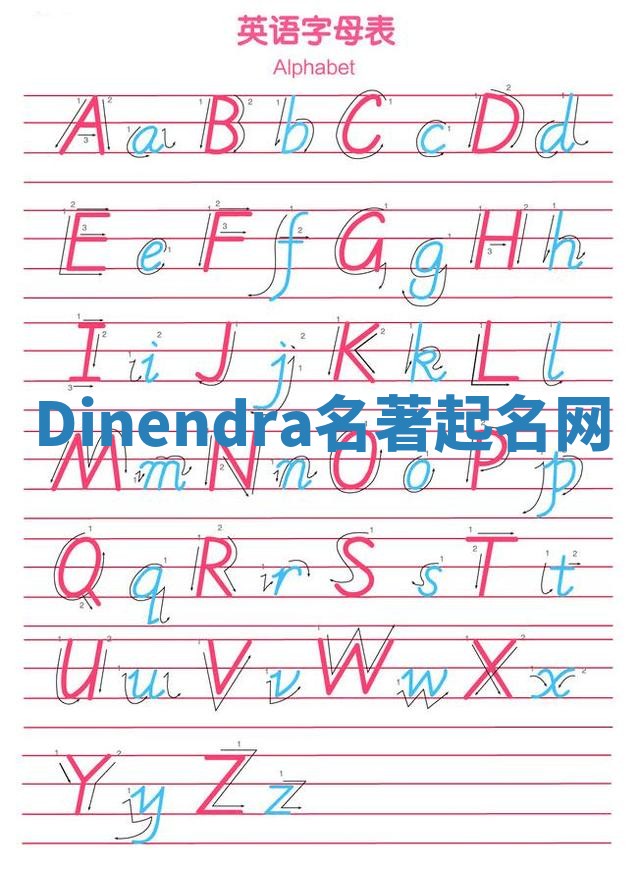 英语字母表
Alphabet
A a B b C c D d
E e F f G g H h
I i J j K k L l
Dinendra名著起名网
M m N n O o P p
Q q R r S s T t
U u V v W w X x
Y y Z z